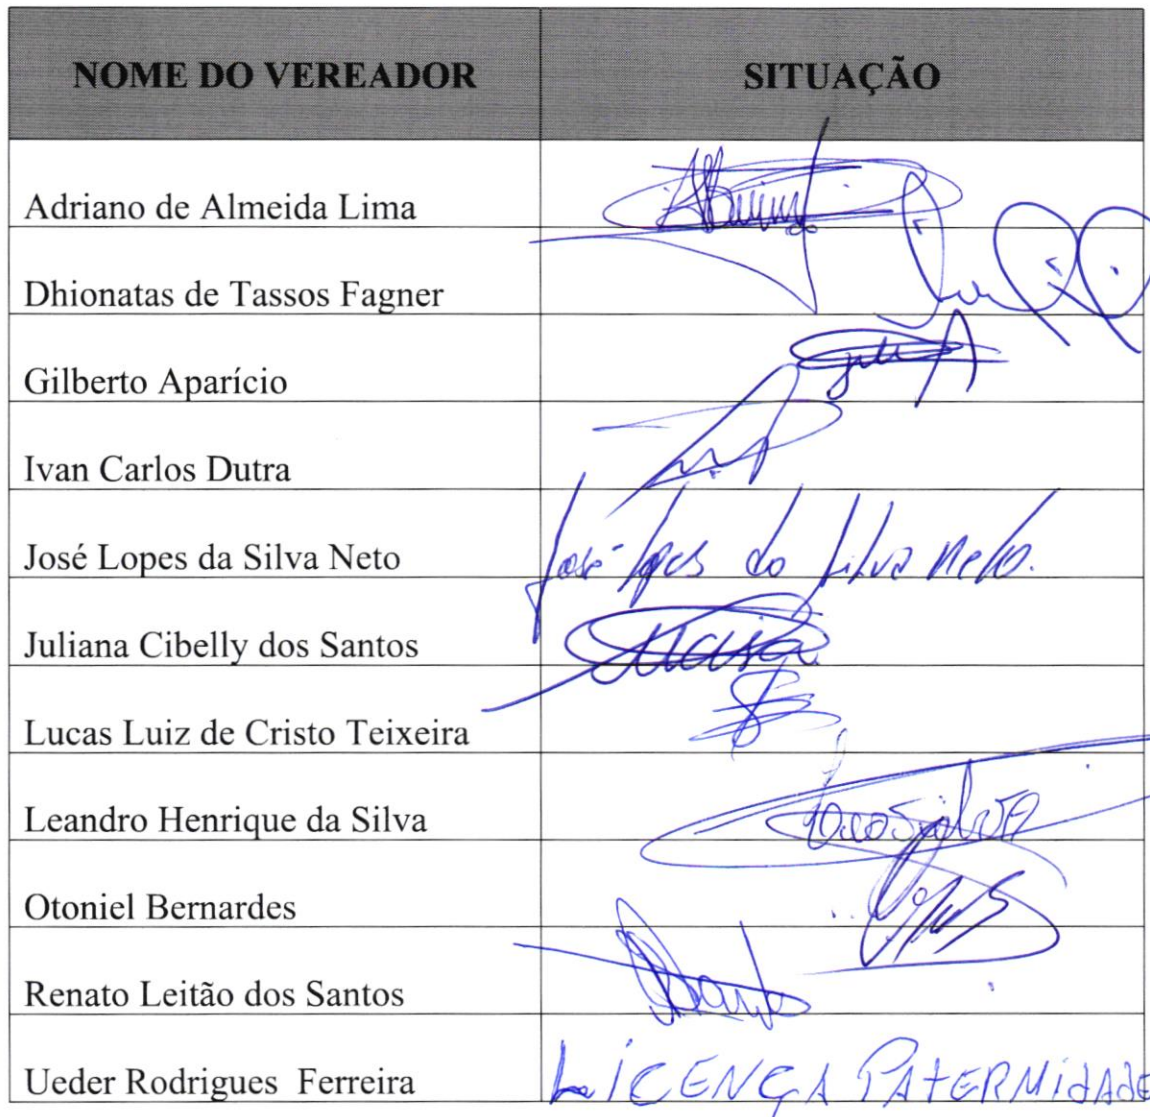 NOME DO VEREADOR SITUAÇÃO
Adriano de Almeida Lima
Dhionatas de Tassos Fagner
Gilberto Aparício
Ivan Carlos Dutra
José Lopes da Silva Neto José Lopes da Silva Neto.
Juliana Cibelly dos Santos
Lucas Luiz de Cristo Teixeira
Leandro Henrique da Silva
Otoniel Bernardes
Renato Leitão dos Santos
Ueder Rodrigues Ferreira LICENÇA PATERMIdAdE